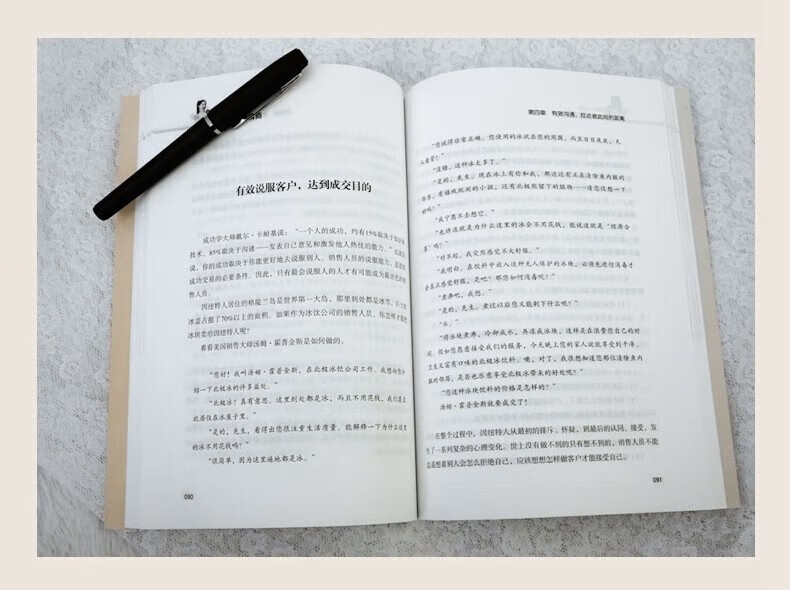 有效说服客户，达到成交目的
成功学大师戴尔·卡耐基说：“一个人的成功，约有15%取决于
技术，85%取决于沟通——发表自己意见和激发他人热忱的能力。”
说，你的成功取决于你能更好地去说服别人。销售人员的说服能力，是
成功交易的必要条件。因此，只有最会说服人的人才有可能成为最出色的销
售人员。
因纽特人居住的格陵兰岛是世界第一大岛，那里到处都是冰雪，
冰盖占据了70%以上的面积。如果作为冰饮公司的销售人员，你怎样才能把
冰块卖给因纽特人呢？
看看美国销售大师汤姆·霍普金斯是如何做的。
“您好！我叫汤姆·霍普金斯，在北极冰饮公司工作。我想向您介
绍一下北极冰的许多益处。”
“北极冰？真有意思。这里到处都是冰，而且不用花钱，我们甚至
就居住在冰屋子里。”
“是的，先生。看得出您很注重生活质量。能解释一下为什么这里
的冰不用花钱吗？”
“很简单，因为这里遍地都是冰。”
090
第四章 有效沟通，拉近彼此间的距离
“您说得非常正确。您使用的冰就在您的周围，而且日日夜夜，无
人看管！”
“没错，这种冰太多了。”
“是的，先生。现在冰上有你和我，那边还有正在清除鱼内脏的
邻居，有嬉戏玩闹的小孩，还有北极熊留下的脏物……请您设想一下
好吗？”
“我宁愿不去想它。”
“也许这就是为什么这里的冰会不用花钱，能说这就是‘经济合
算’吗？”
“对不起，我突然感觉不太舒服。”
“我明白。在饮料中放入这种无人保护的冰块，必须先进行消毒才
会真正感觉舒服，是吧？那您如何消毒呢？”
“煮沸吧，我想。”
“是的，先生。煮过以后您又能剩下什么呢？”
“水。”
“将冰块煮沸，冷却成水，再冻成冰块，这样是在浪费您自己的时
间。假如您愿意接受我们的服务，今天晚上您的家人就能享受到干净、
卫生又富有口味的北极冰饮料。噢，对了，我很想知道您那位清除鱼内
脏的邻居，是否也乐意享受北极冰带来的好处呢？”
“您这种冰块饮料的价格是怎样的？”
汤姆·霍普金斯就要成交了！
在整个过程中，因纽特人从最初的排斥、怀疑，到最后的认同、接受，发
生了一系列复杂的心理变化。世上没有做不到的只有想不到的，销售人员不能
总是想着别人会怎么拒绝自己，应该想想怎样做客户才能接受自己。
091